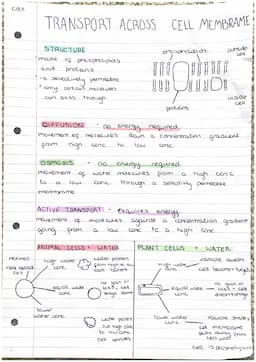 TRANSPORT ACROSS CELL MEMBRANE
STRUCTURE
made of phospholipids
and proteins
is selectively permeable
only certain molecules
can pass through
phospholipids
outside
cell
inside
cell
proteins
DIFFUSION - no energy required
movement of molecules down a concentration gradient
from high conc to low conc.
OSMOSIS - no energy required
movement of water molecules from a high conc
to a low conc through a selectively permeable
membrane
ACTIVE TRANSPORT - requires energy
movement of molecules against a concentration gradient
going from a low conc to a high conc
ANIMAL CELLS + WATER
normal
red blood
cell
high water
conc
equal water
conc
lower
water conc
water
cell
no gain or
water
cell
PLANT CELLS + WATER
high water
conc
vacuole swells
cell becomes turgid
equal water
conc
no gain or
lower
water conc
vacuole shrinks
cell membrane
pulls away from
cell wall